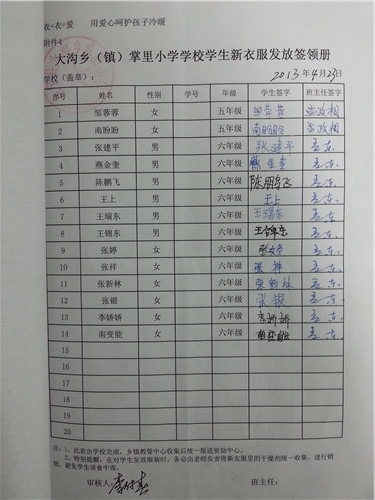 衣+衣=爱 用爱心呵护孩子冷暖
附件4
大沟乡（镇）掌里小学学校学生新衣服发放签领册
学校（盖章）： 2013年4月23日
序号 姓名 性别 学号 年级 学生签字 班主任签字
1 邹蓉蓉 女 五年级 邹蓉蓉
2 南盼盼 女 五年级 南盼盼
3 张建平 男 六年级 张建平
4 燕金奎 男 六年级 燕金奎
5 陈鹏飞 男 六年级 陈鹏飞
6 王上 男 六年级 王上
7 王瑞东 男 六年级 王瑞东
8 王锦东 男 六年级 王锦东
9 张婷 女 六年级 张婷
10 张祥 女 六年级 张祥
11 张新林 女 六年级 张新林
12 张银 女 六年级 张银
13 李娇娇 女 六年级 李娇娇
14 南变能 女 六年级 南变能
15
16
17
18
19
20
注：1，此表由学校完成，乡镇教管中心收集后统一报送资助中心。
2，特别提醒：在对学生发放服装时，务必由老师负责将新衣服里的干燥剂统一收集，进行销
毁，避免学生误食中毒。
审核人： 班主任：